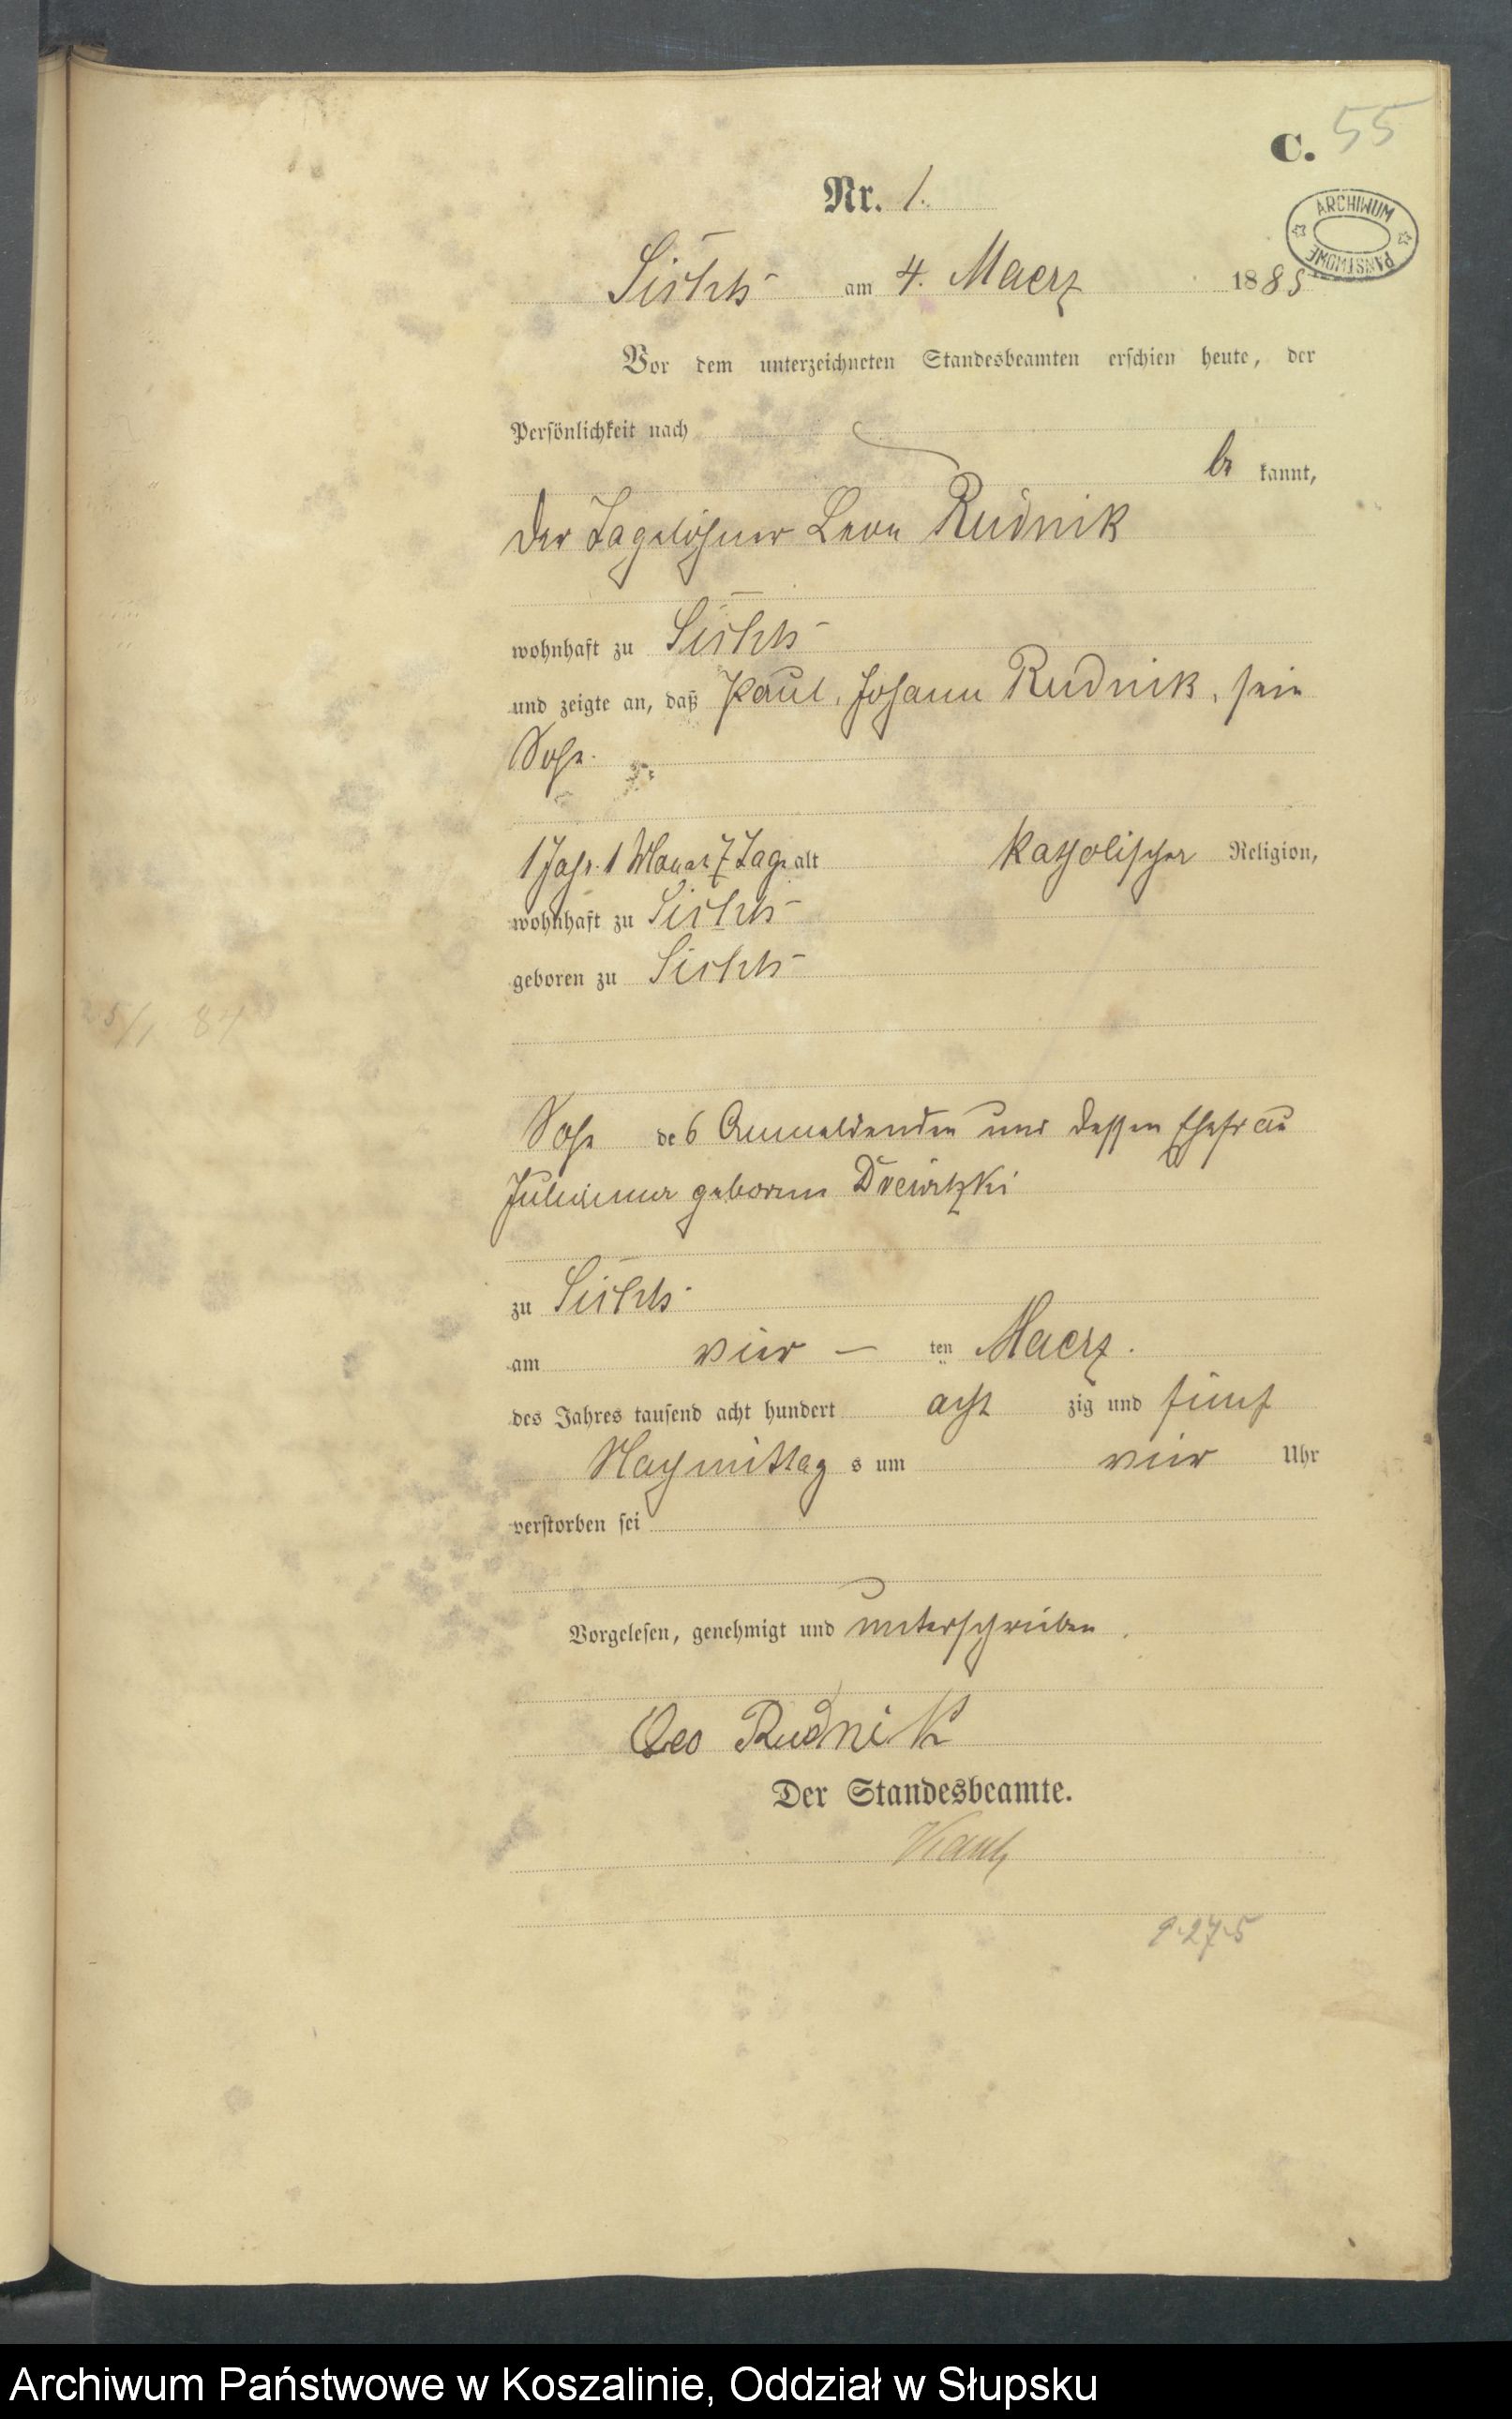 C. 55
Nr. 1.
ARCHIWUM PAŃSTWOWE
am 4. Maerz 1885
Vor dem unterzeichneten Standesbeamten erschien heute, der
Persönlichkeit nach
be kannt,
der Tagelöhner Leon Rudnik
wohnhaft zu
und zeigte an, daß Paul, Johann Rudnik, sein
Sohn
1 Jahr 1 Monat 7 Tage alt katholischer Religion,
wohnhaft zu
geboren zu
84
Sohn des Anmeldenden und dessen Ehefrau
geborene
zu
am vier — ten Maerz.
des Jahres tausend acht hundert acht zig und fünf
Nachmittag s um vier Uhr
verstorben sei
Vorgelesen, genehmigt und unterschrieben.
Leo Rudnik
Der Standesbeamte.
Archiwum Państwowe w Koszalinie, Oddział w Słupsku